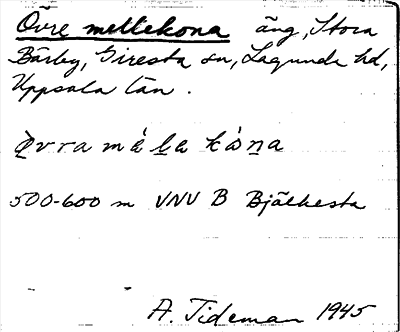 Övre mellekona äng, Stora
Bärby, Giresta sn, Lagunda hd,
Uppsala län.
Övra méla kòna
500-600 m VNV B Bjälkesta
A. Tideman 1945